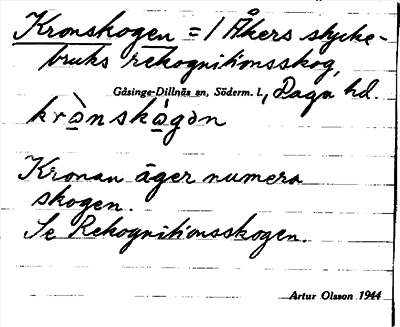 Kronskogen = / Åkers stycke-
bruks rekognitionsskog,
Gåsinge-Dillnäs sn, Söderm. l., Daga hd.
krò̱nská̱gən
Kronan äger numera
skogen.
Se Rekognitionsskogen.
Artur Olsson 1944